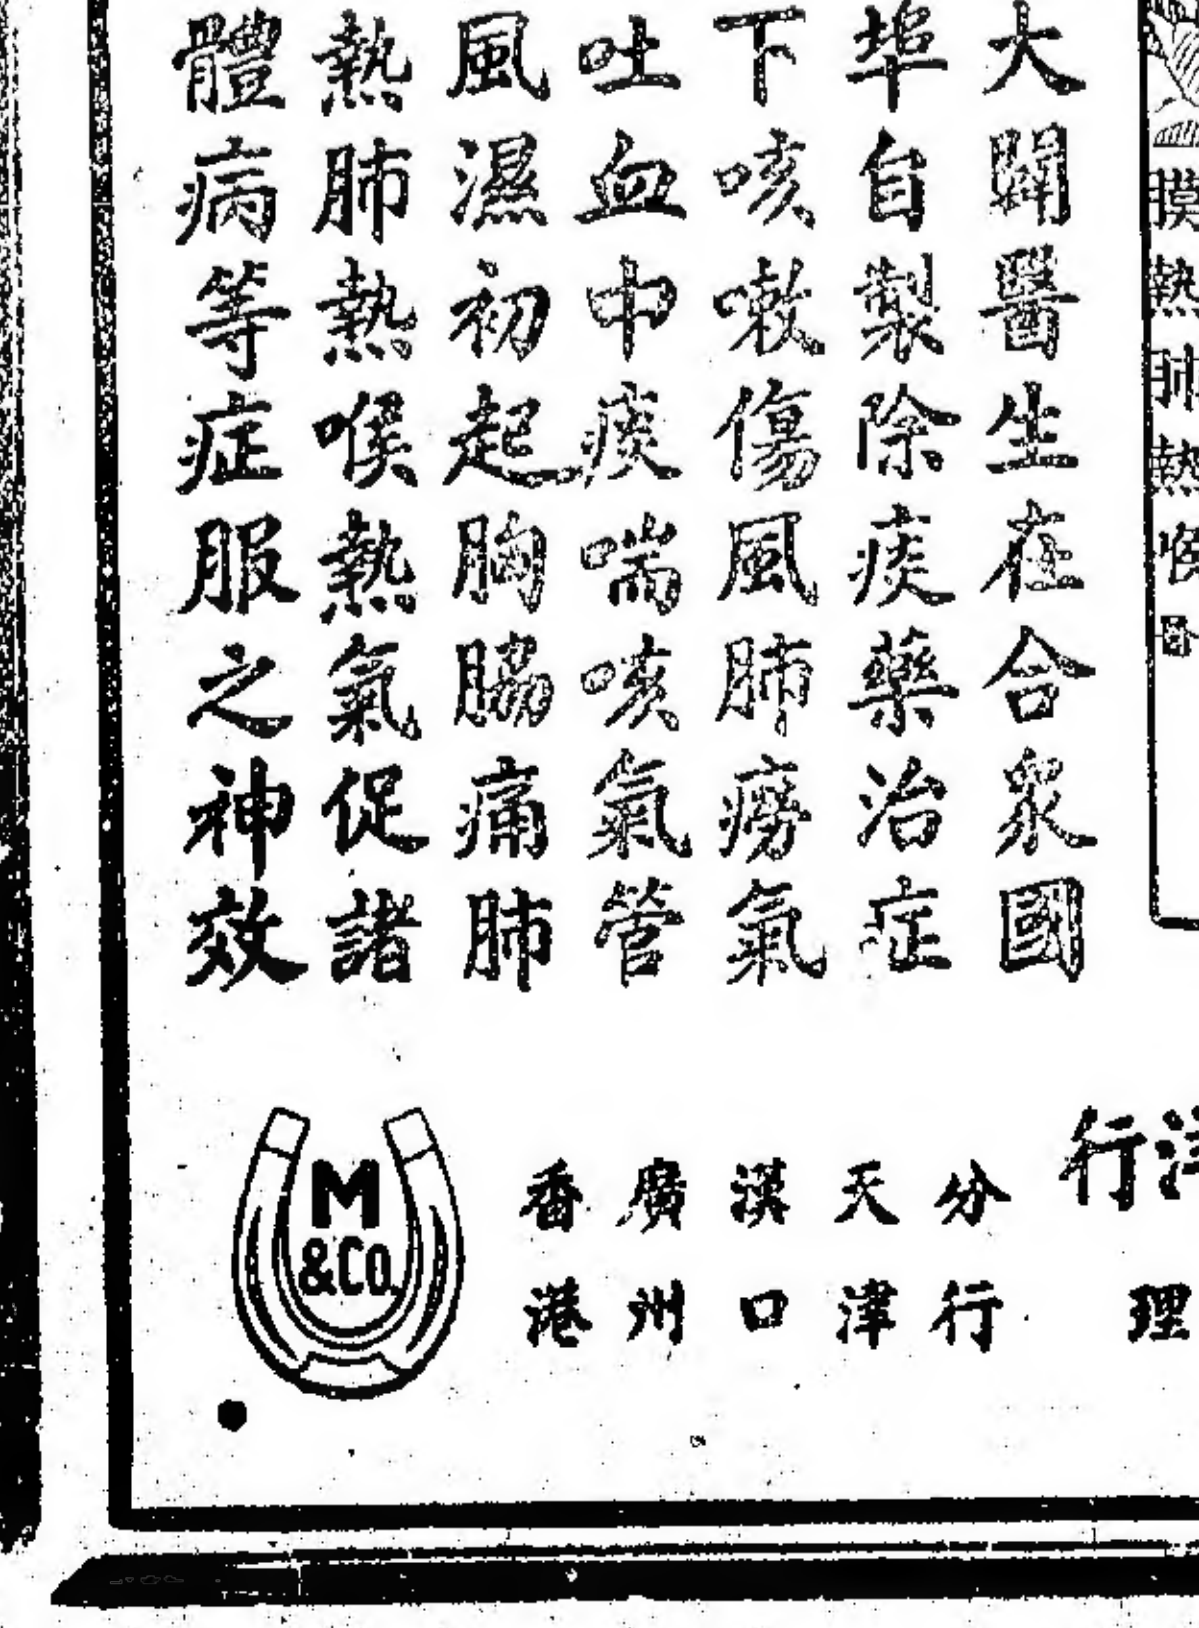 大闢醫生在合衆國
埠自製除痰藥治症
下咳嗽傷風肺癆氣
吐血中痰喘咳氣管
風濕初起胸脇痛肺
熱肺熱喉熱氣促諸
體病等症服之神效
膜熱肺熱喉
洋行
理
分行
天津
漢口
廣州
香港
M
&CO.